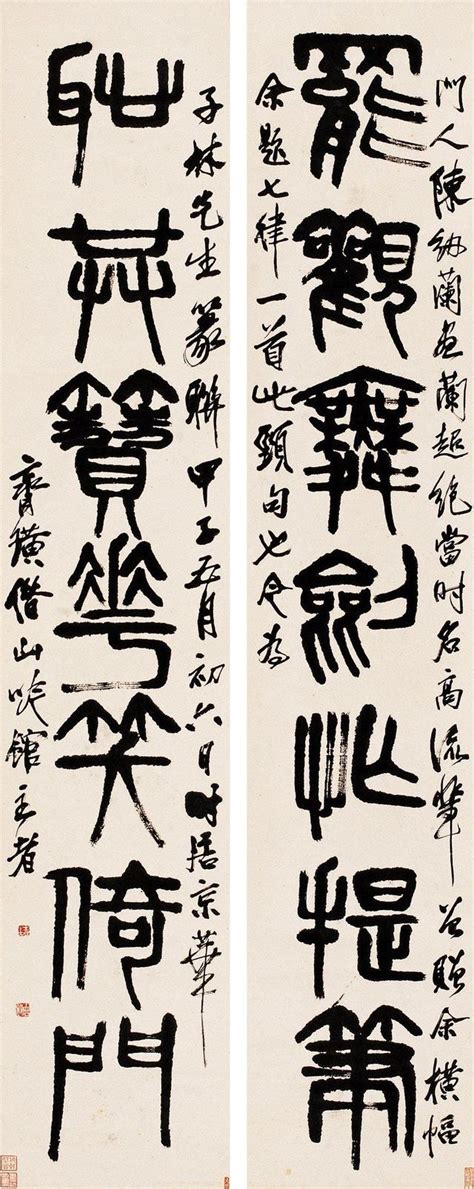 門人陳紉蘭画蘭超絕當時名高流輩曾贈余橫幅
罷觀舞劍忙提筆
余題七律一首此頸句也今為
子林先生篆聯甲子五月初六日時居京華
恥共簪花笑倚門
齊璜借山吟館主者